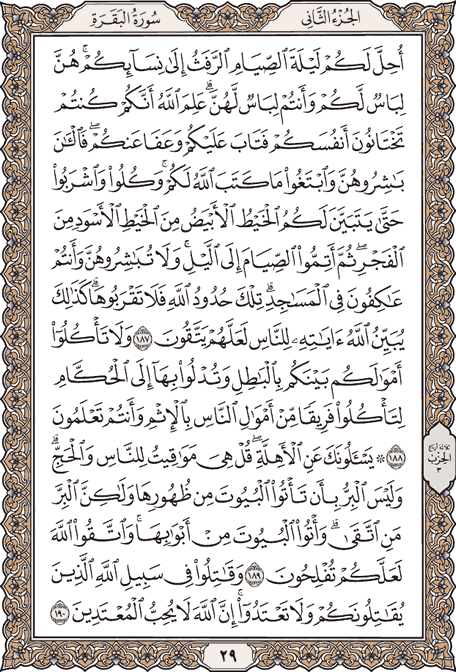 الجزء الثاني
سورة البقرة
أُحِلَّ لَكُمْ لَيْلَةَ ٱلصِّيَامِ ٱلرَّفَثُ إِلَىٰ نِسَآئِكُمْ ۚ هُنَّ
لِبَاسٌ لَّكُمْ وَأَنتُمْ لِبَاسٌ لَّهُنَّ ۗ عَلِمَ ٱللَّهُ أَنَّكُمْ كُنتُمْ
تَخْتَانُونَ أَنفُسَكُمْ فَتَابَ عَلَيْكُمْ وَعَفَا عَنكُمْ ۖ فَٱلْـَٰٔنَ
بَـٰشِرُوهُنَّ وَٱبْتَغُوا۟ مَا كَتَبَ ٱللَّهُ لَكُمْ ۚ وَكُلُوا۟ وَٱشْرَبُوا۟
حَتَّىٰ يَتَبَيَّنَ لَكُمُ ٱلْخَيْطُ ٱلْأَبْيَضُ مِنَ ٱلْخَيْطِ ٱلْأَسْوَدِ مِنَ
ٱلْفَجْرِ ۖ ثُمَّ أَتِمُّوا۟ ٱلصِّيَامَ إِلَى ٱلَّيْلِ ۚ وَلَا تُبَـٰشِرُوهُنَّ وَأَنتُمْ
عَـٰكِفُونَ فِى ٱلْمَسَـٰجِدِ ۗ تِلْكَ حُدُودُ ٱللَّهِ فَلَا تَقْرَبُوهَا ۗ كَذَٰلِكَ
يُبَيِّنُ ٱللَّهُ ءَايَـٰتِهِۦ لِلنَّاسِ لَعَلَّهُمْ يَتَّقُونَ ١٨٧ وَلَا تَأْكُلُوٓا۟
أَمْوَٰلَكُم بَيْنَكُم بِٱلْبَـٰطِلِ وَتُدْلُوا۟ بِهَآ إِلَى ٱلْحُكَّامِ
لِتَأْكُلُوا۟ فَرِيقًا مِّنْ أَمْوَٰلِ ٱلنَّاسِ بِٱلْإِثْمِ وَأَنتُمْ تَعْلَمُونَ
١٨٨ ۞ يَسْـَٔلُونَكَ عَنِ ٱلْأَهِلَّةِ ۖ قُلْ هِىَ مَوَٰقِيتُ لِلنَّاسِ وَٱلْحَجِّ ۗ
وَلَيْسَ ٱلْبِرُّ بِأَن تَأْتُوا۟ ٱلْبُيُوتَ مِن ظُهُورِهَا وَلَـٰكِنَّ ٱلْبِرَّ
مَنِ ٱتَّقَىٰ ۗ وَأْتُوا۟ ٱلْبُيُوتَ مِنْ أَبْوَٰبِهَا ۚ وَٱتَّقُوا۟ ٱللَّهَ
لَعَلَّكُمْ تُفْلِحُونَ ١٨٩ وَقَـٰتِلُوا۟ فِى سَبِيلِ ٱللَّهِ ٱلَّذِينَ
يُقَـٰتِلُونَكُمْ وَلَا تَعْتَدُوٓا۟ ۚ إِنَّ ٱللَّهَ لَا يُحِبُّ ٱلْمُعْتَدِينَ ١٩٠
ثلاثة أرباع
الحزب
٣
٢٩